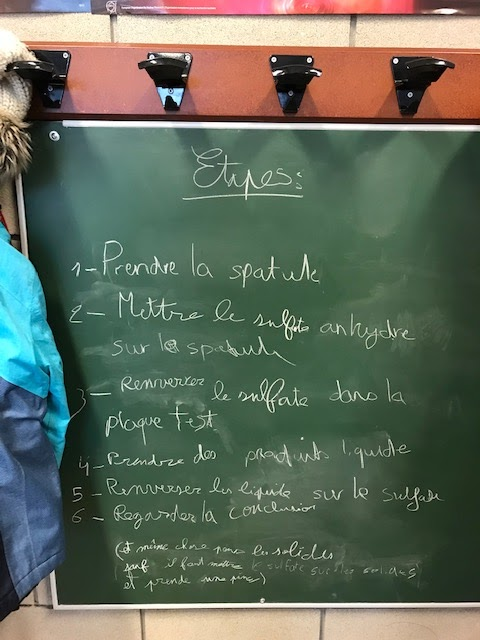 Etapes:
1- Prendre la spatule
2- Mettre le sulfate anhydre
sur la spatule
3- Renverser le sulfate dans la
plaque test.
4- Prendre des produits liquide
5- Renverser les liquide sur le sulfate
6- Regarder la conclusion
(et même chose pour les solides
sauf il faut mettre le sulfate sur les solides
et prende une pince)